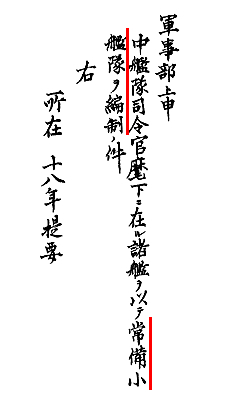 軍事部上申
中艦隊司令官麾下ニ在ル諸艦ヲ以テ常備小
艦隊ヲ編制ノ件
右
所在 十八年提要